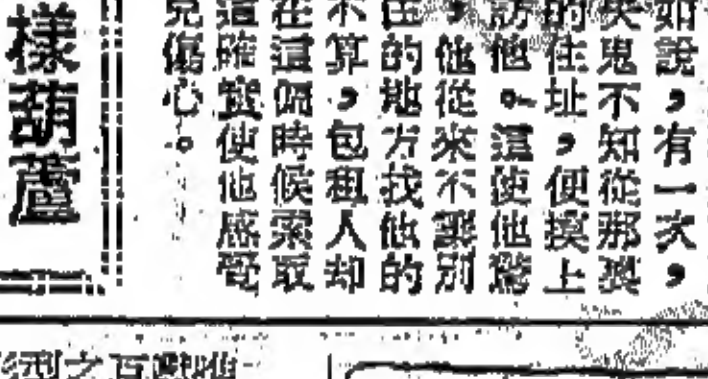 如說，有一次，
鬼不知從那裏
的住址，便摸上
訪他。這使他驚
，他從來不讓別
住的地方找他的
不算，包租人却
在這個時候索取
這確實使他感受
傷心。
樣葫蘆
型之互